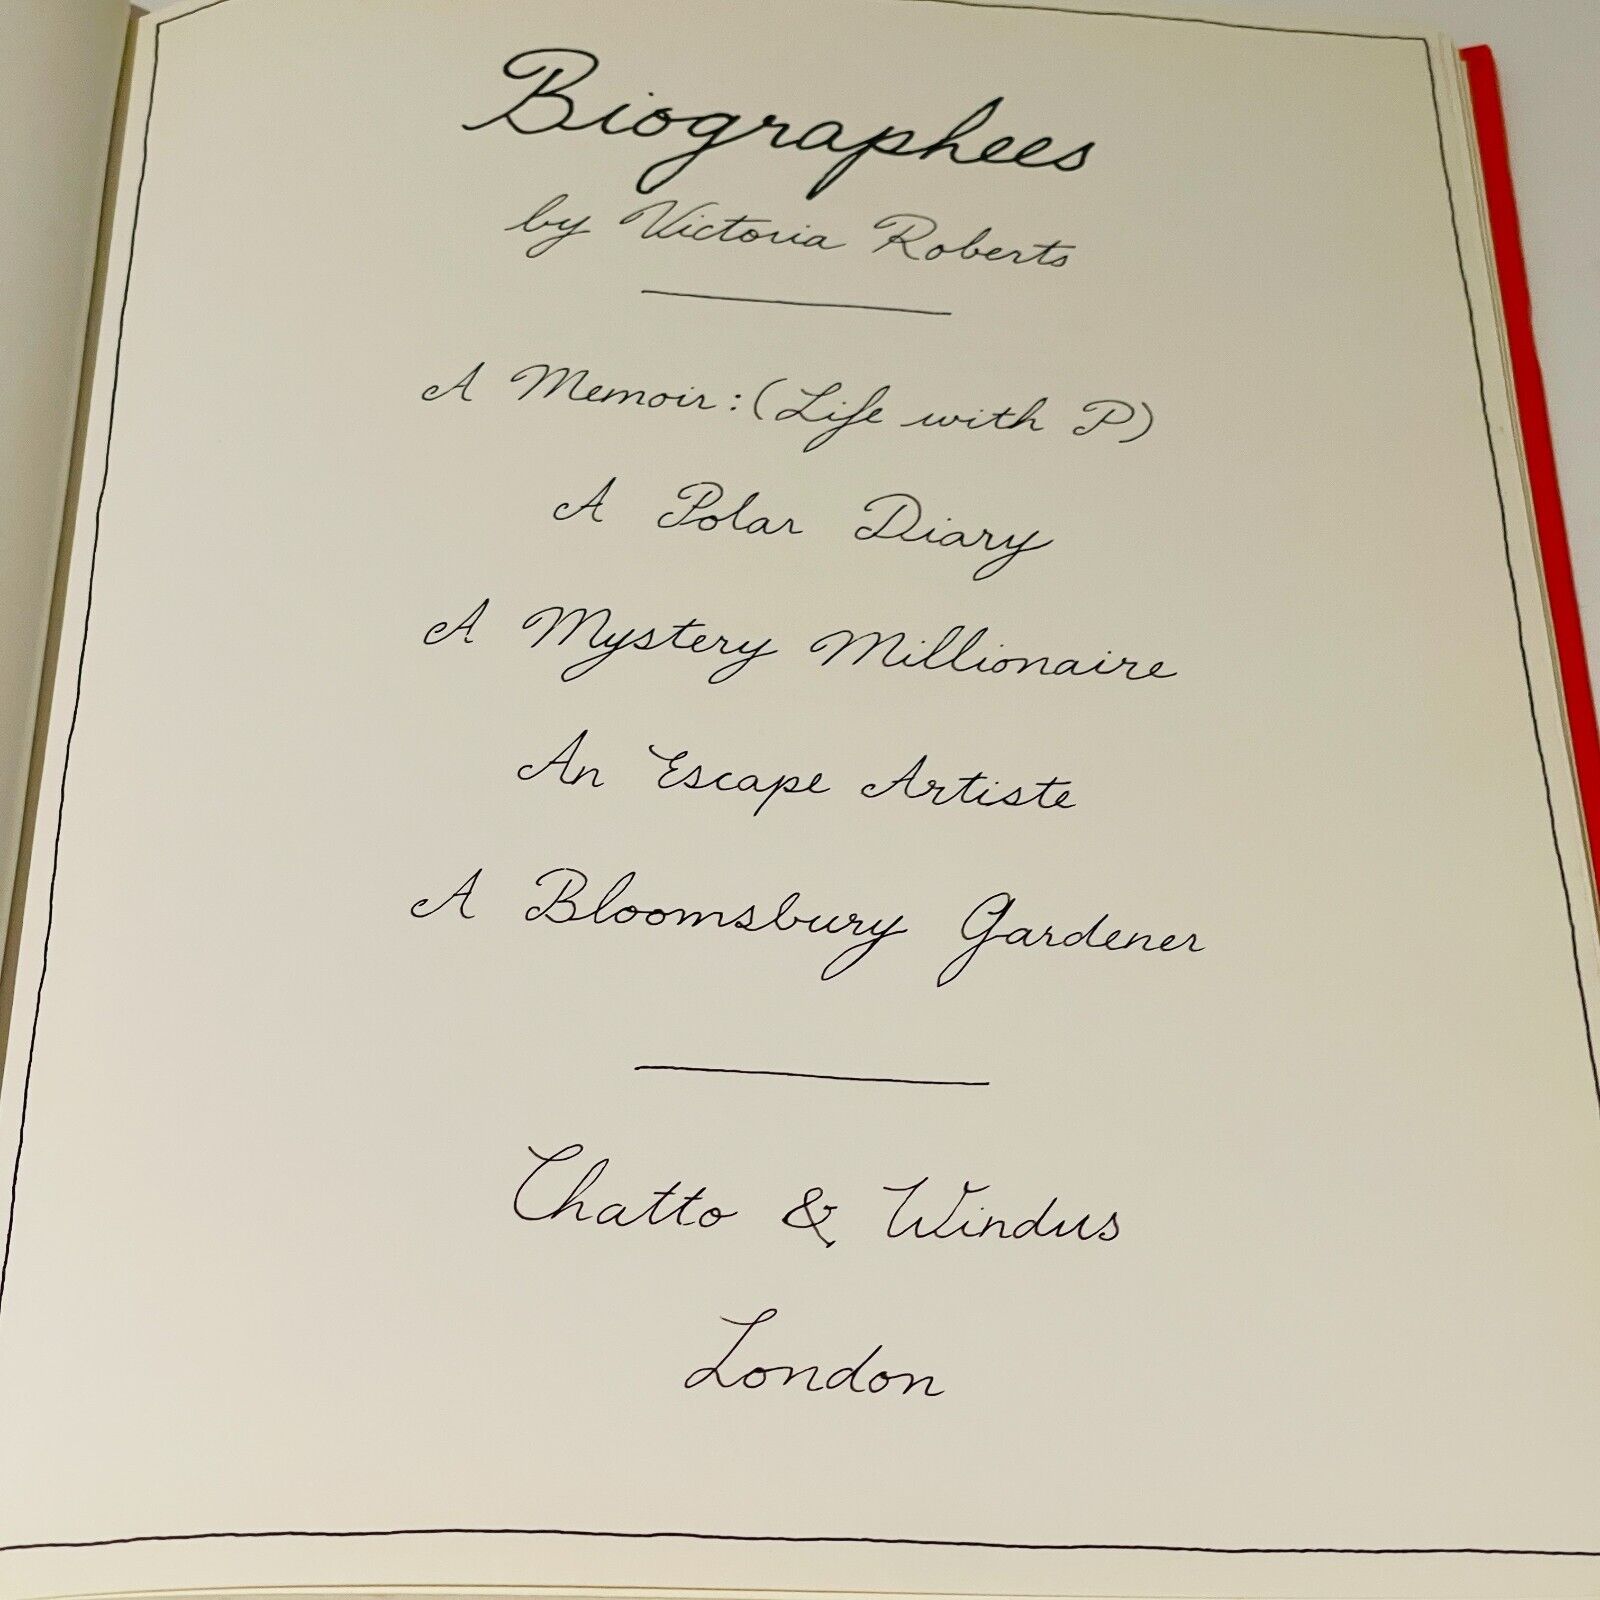 Biographees
by Victoria Roberts
A Memoir: (Life with P)
A Polar Diary
A Mystery Millionaire
An Escape Artiste
A Bloomsbury Gardener
Chatto & Windus
London